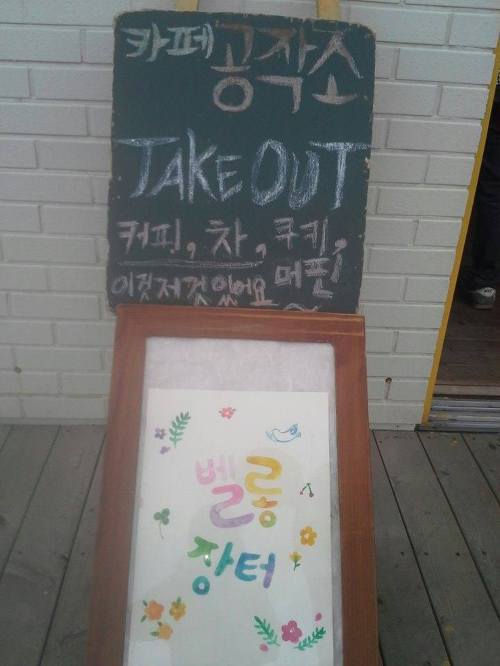 카페 공작소
TAKE OUT
커피, 차, 쿠키,
이것저것있어요 머핀!
벨롱
장터